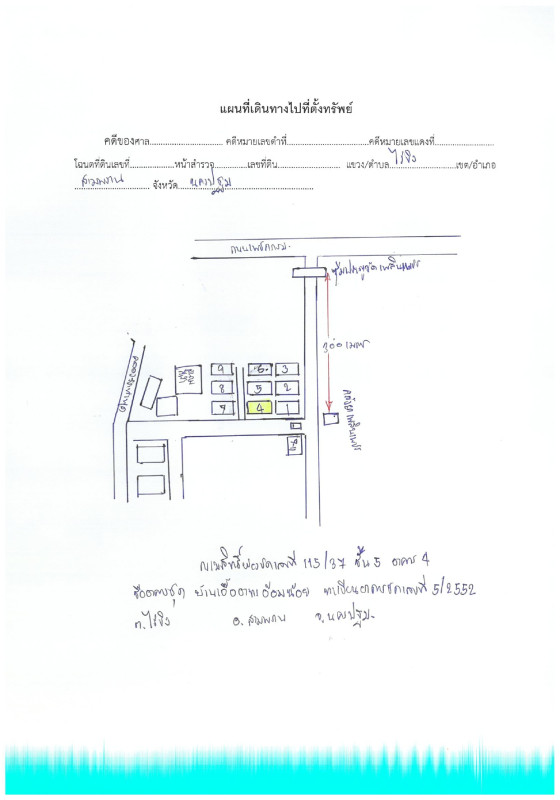 แผนที่เดินทางไปที่ตั้งทรัพย์
คดีของศาล.............................. คดีหมายเลขดำที่..................................คดีหมายเลขแดงที่........................
โฉนดที่ดินเลขที่...................หน้าสำรวจ..............เลขที่ดิน.......................... แขวง/ตำบล ไร่ขิง เขต/อำเภอ
สามพราน จังหวัด นครปฐม
ถนนเพชรเกษม
ซุ้มประตูวัดเพลินเพชร
300 เมตร
9 6 3
8 5 2
7 4 1
ห้องชุดเลขที่ 115/37 ชั้น 5 อาคาร 4
ชื่ออาคารชุด บ้านเอื้ออาทรอ้อมน้อย ทะเบียนอาคารชุดเลขที่ 5/2552
ต.ไร่ขิง อ.สามพราน จ.นครปฐม